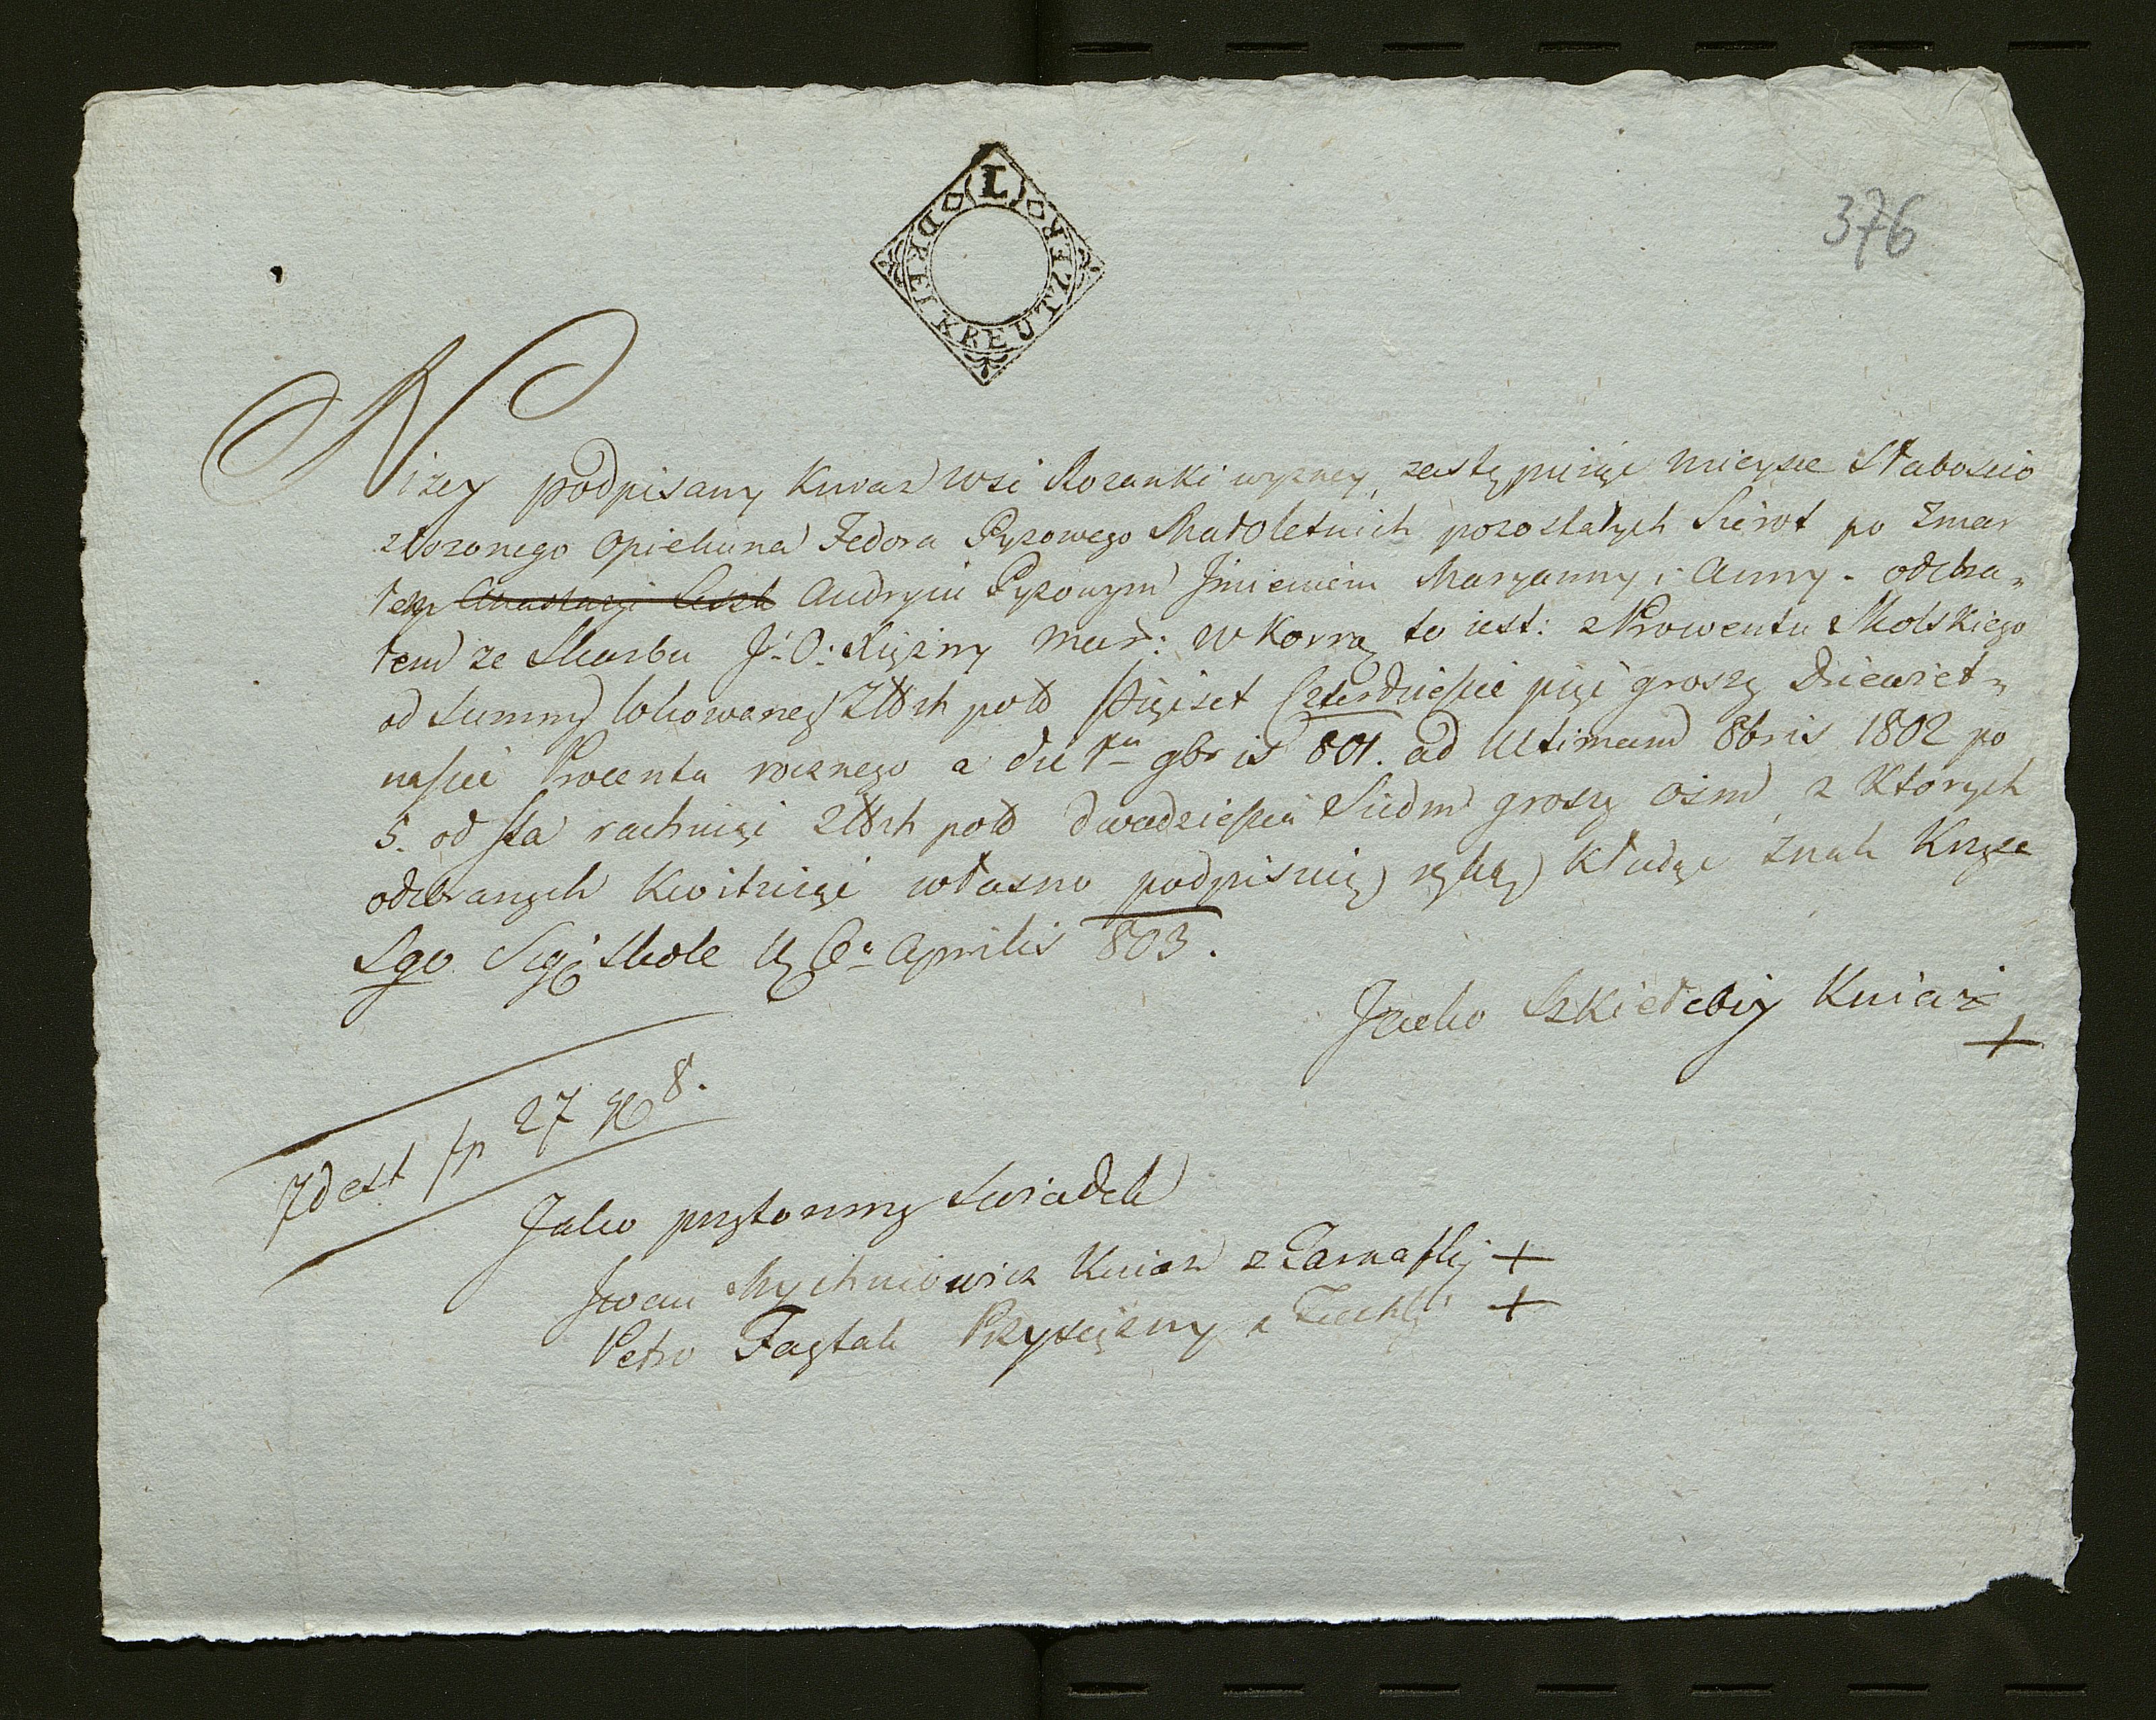 L
DREI KREUTZER
376
Nizey podpisany Kniaz wsi Rozanki wyzney, zastępuiąc mieysce słabością
złozonego opiekuna Fedora Pyzowego Małoletnich pozostałych Sierot po Zmar
łem Andryiu Pyzowym Jmieniem Maryanny i Anny. odebra„
łem ze Skarbu J: O: Xiężny Mar: W Kor to iest: z Prowentu Skolskiego
od Summy lokowaney Złłch pol Pięiset Czterdzieście pięć groszy Dziewiet„
naście Procentu rocznego a die 1ma 9bris 801. ad Ultimam 8bris 1802 po
5. od sta rachuiąc Złłch pol dwadzieścia Siedm groszy ośm, z Których
odebranych Kwituiąc własno podpisuię ręką Kładąc znak Krzyża
Sgo Skole Aprilis 803.
Jacko Szkiełebiy Kniaź +
Jdest fp 27 gr 8.
Jako przytomny Swiadek
Jwan Mychniowicz Kniaz z Tarnawki +
Petro Faytak Przysięzny z +